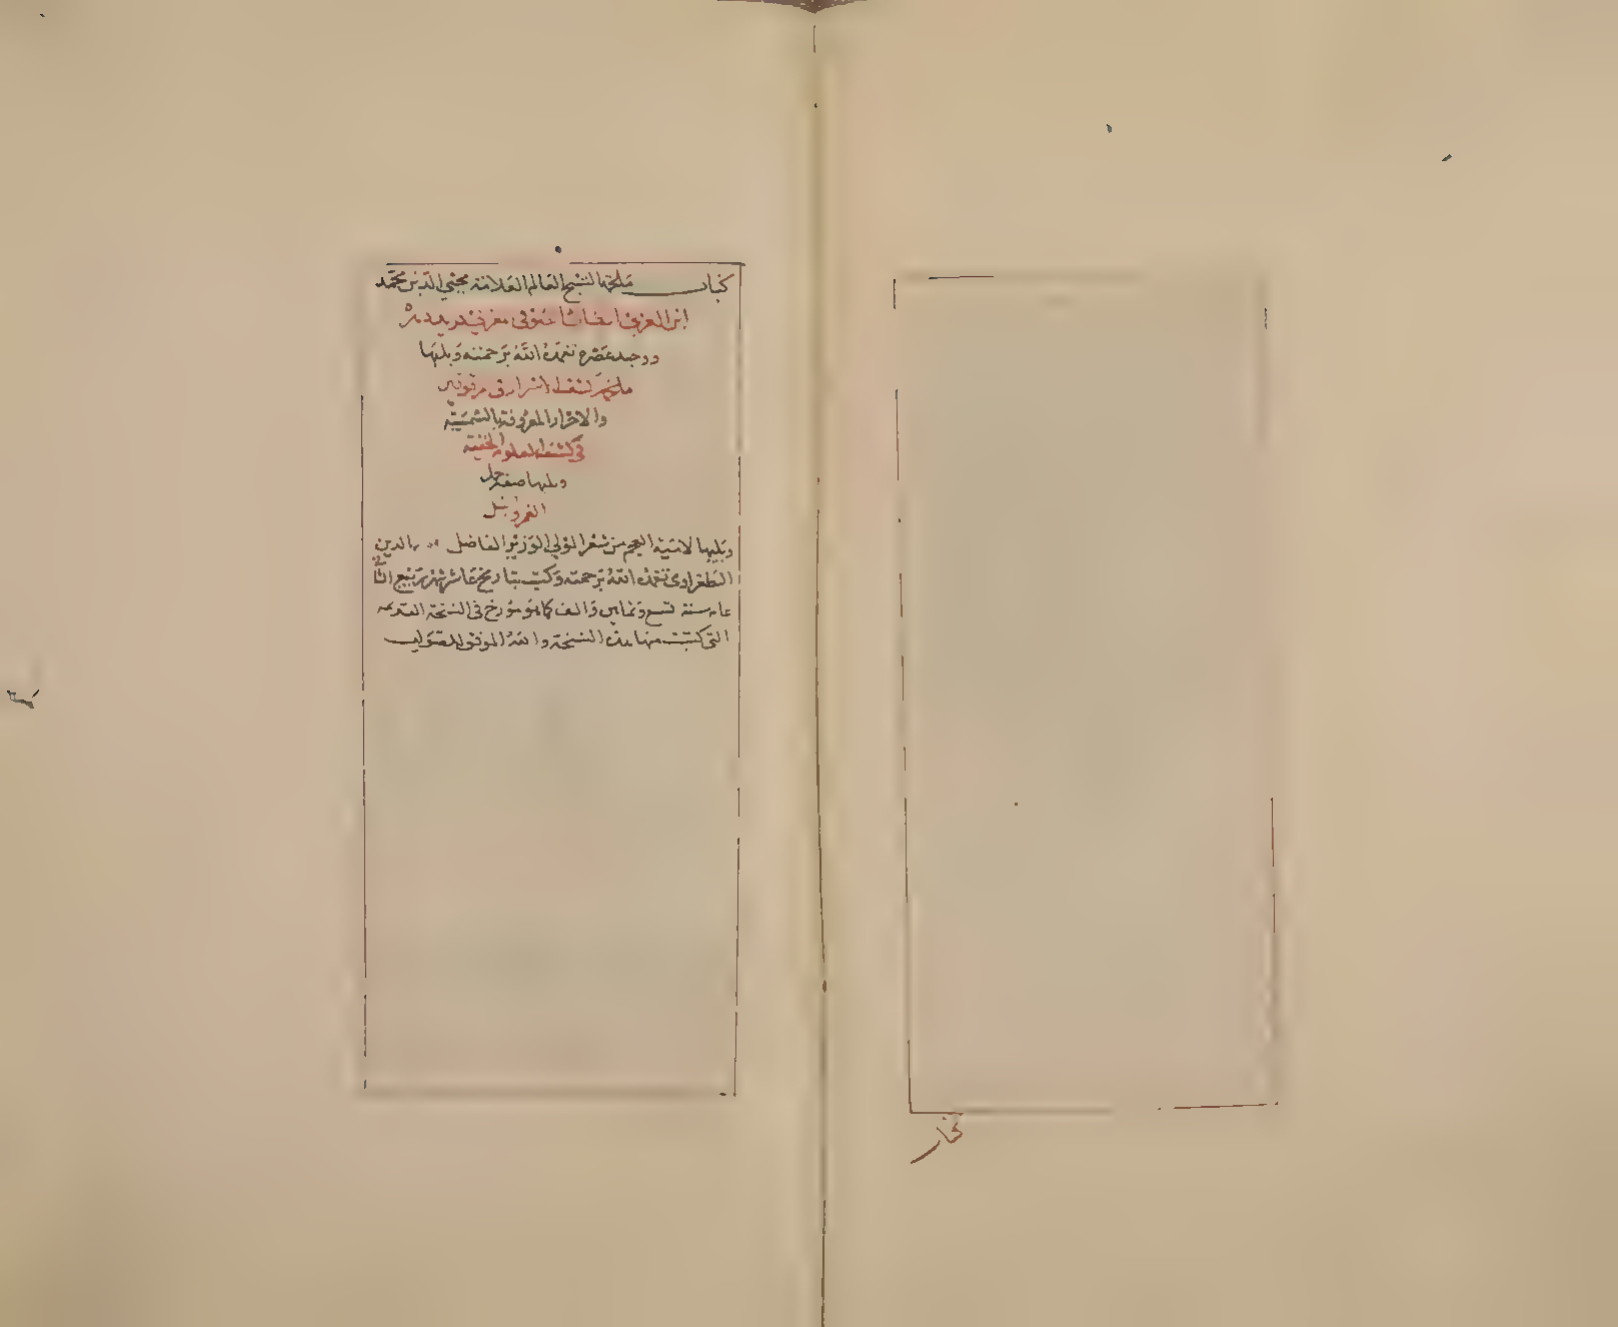 كتاب ملحمة الشيخ العالم العلامة محيي الدين محمد
ابن العربي
ووحيد عصره تغمده الله برحمته ويليها
ملحمة كشف اسرار
والاحرار المعروفة بالشمسية
في كشف العلوم الخفية
ويليها صفة حل
القمر
ويليها لامية العجم من شعر المولي الوزير الفاضل الدين
الطغراوي تغمده الله برحمته وكتبت بتاريخ عاشر شهر ربيع الثاني
عام سنة تسع وثمانين والف كما هو مؤرخ في النسخة القديمه
التي كتبت منها هذه النسخة والله الموفق للصواب
كتاب